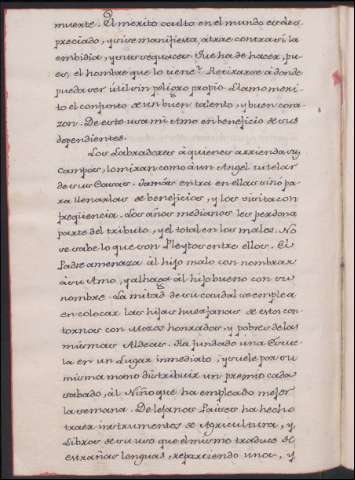 muerte. El merito oculto en el mundo es des-
preciado, y si se manifiesta, atrae contra sí la
embidia, y sus sequaces. Que ha de hacer, pu-
es, el hombre que lo tiene? Retirarse a donde
pueda ser útil sin peligro propio. Llamo meri-
to el conjunto de un buen talento, y buen cora-
zon. De este usa mi Amo en beneficio de sus
dependientes.
Los Labradores á quienes arrienda sus
campos, lo miran como á un Angel tutelar
de sus Casas. Jamás entra en ellas sino pa-
ra llenarlas de beneficios, y los visita con
freqüencia. Los años medianos les perdona
parte del tributo, y el total en los malos. No
se sabe lo que son Pleytos entre ellos. El
Padre amenaza al hijo malo con nombrar
à su Amo, y alhaga àl hijo bueno con su
nombre. La mitad de su caudal se emplea
en colocar las hijas huerfanas de estos con-
tornos con Mozos honrados, y pobres de las
mismas Aldeas. Ha fundado una Escue-
la en un Lugar inmediato, y suele por su
misma mano distribuir un premio cada
sabado, al Niño que ha empleado mejor
la semana. De lejanos Paises ha hecho
traer instrumentos de Agricultura, y
Libros de su uso que el mismo traduce de
estrañas lenguas, repartiendo unos, y